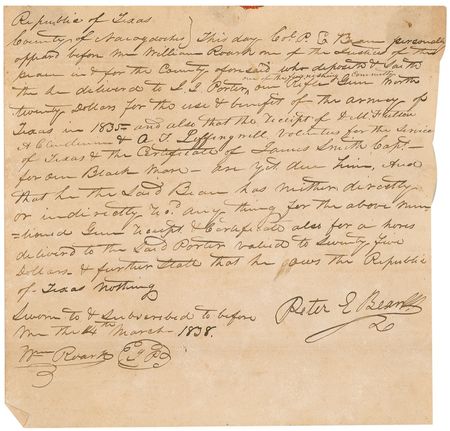 Republic of Texas
County of Nacogdoches } This day Col. P. E. Bean personally
appeard before me William Roark one of the Justice of the
peace in & for the County aforesaid who deposeth & saith
one of the
the he delivered to J. J. Porter, one Rifle Gun worth
twenty Dollars for the use & benefit of the army of
Texas in 1835 and also that the receipt of
A Clendenin & A. T. Leffingwell Volunteers for the Service
of Texas & the Certificate of James Smith Capt.
for one Black Mare are yet due him. And
that he the Said Bean has neither directly
or indirectly rec'd any thing for the above men
=tioned Gun receipt & Certificate also for a hors
delivered to the Said Porter valued to Seventy five
Dollars & further State that he owes the Republic
of Texas nothing
Sworn to & Subscribed to before
me the 14th March 1838.
Peter E Bean
Wm Roark J P